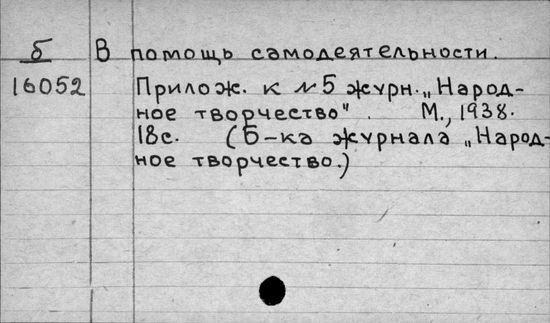 Б В помощь самодеятельности.
16052 Прилож. к №5 журн. „Народ-
ное творчество". М., 1938.
18с. (Б-ка журнала „Народ-
ное творчество.)